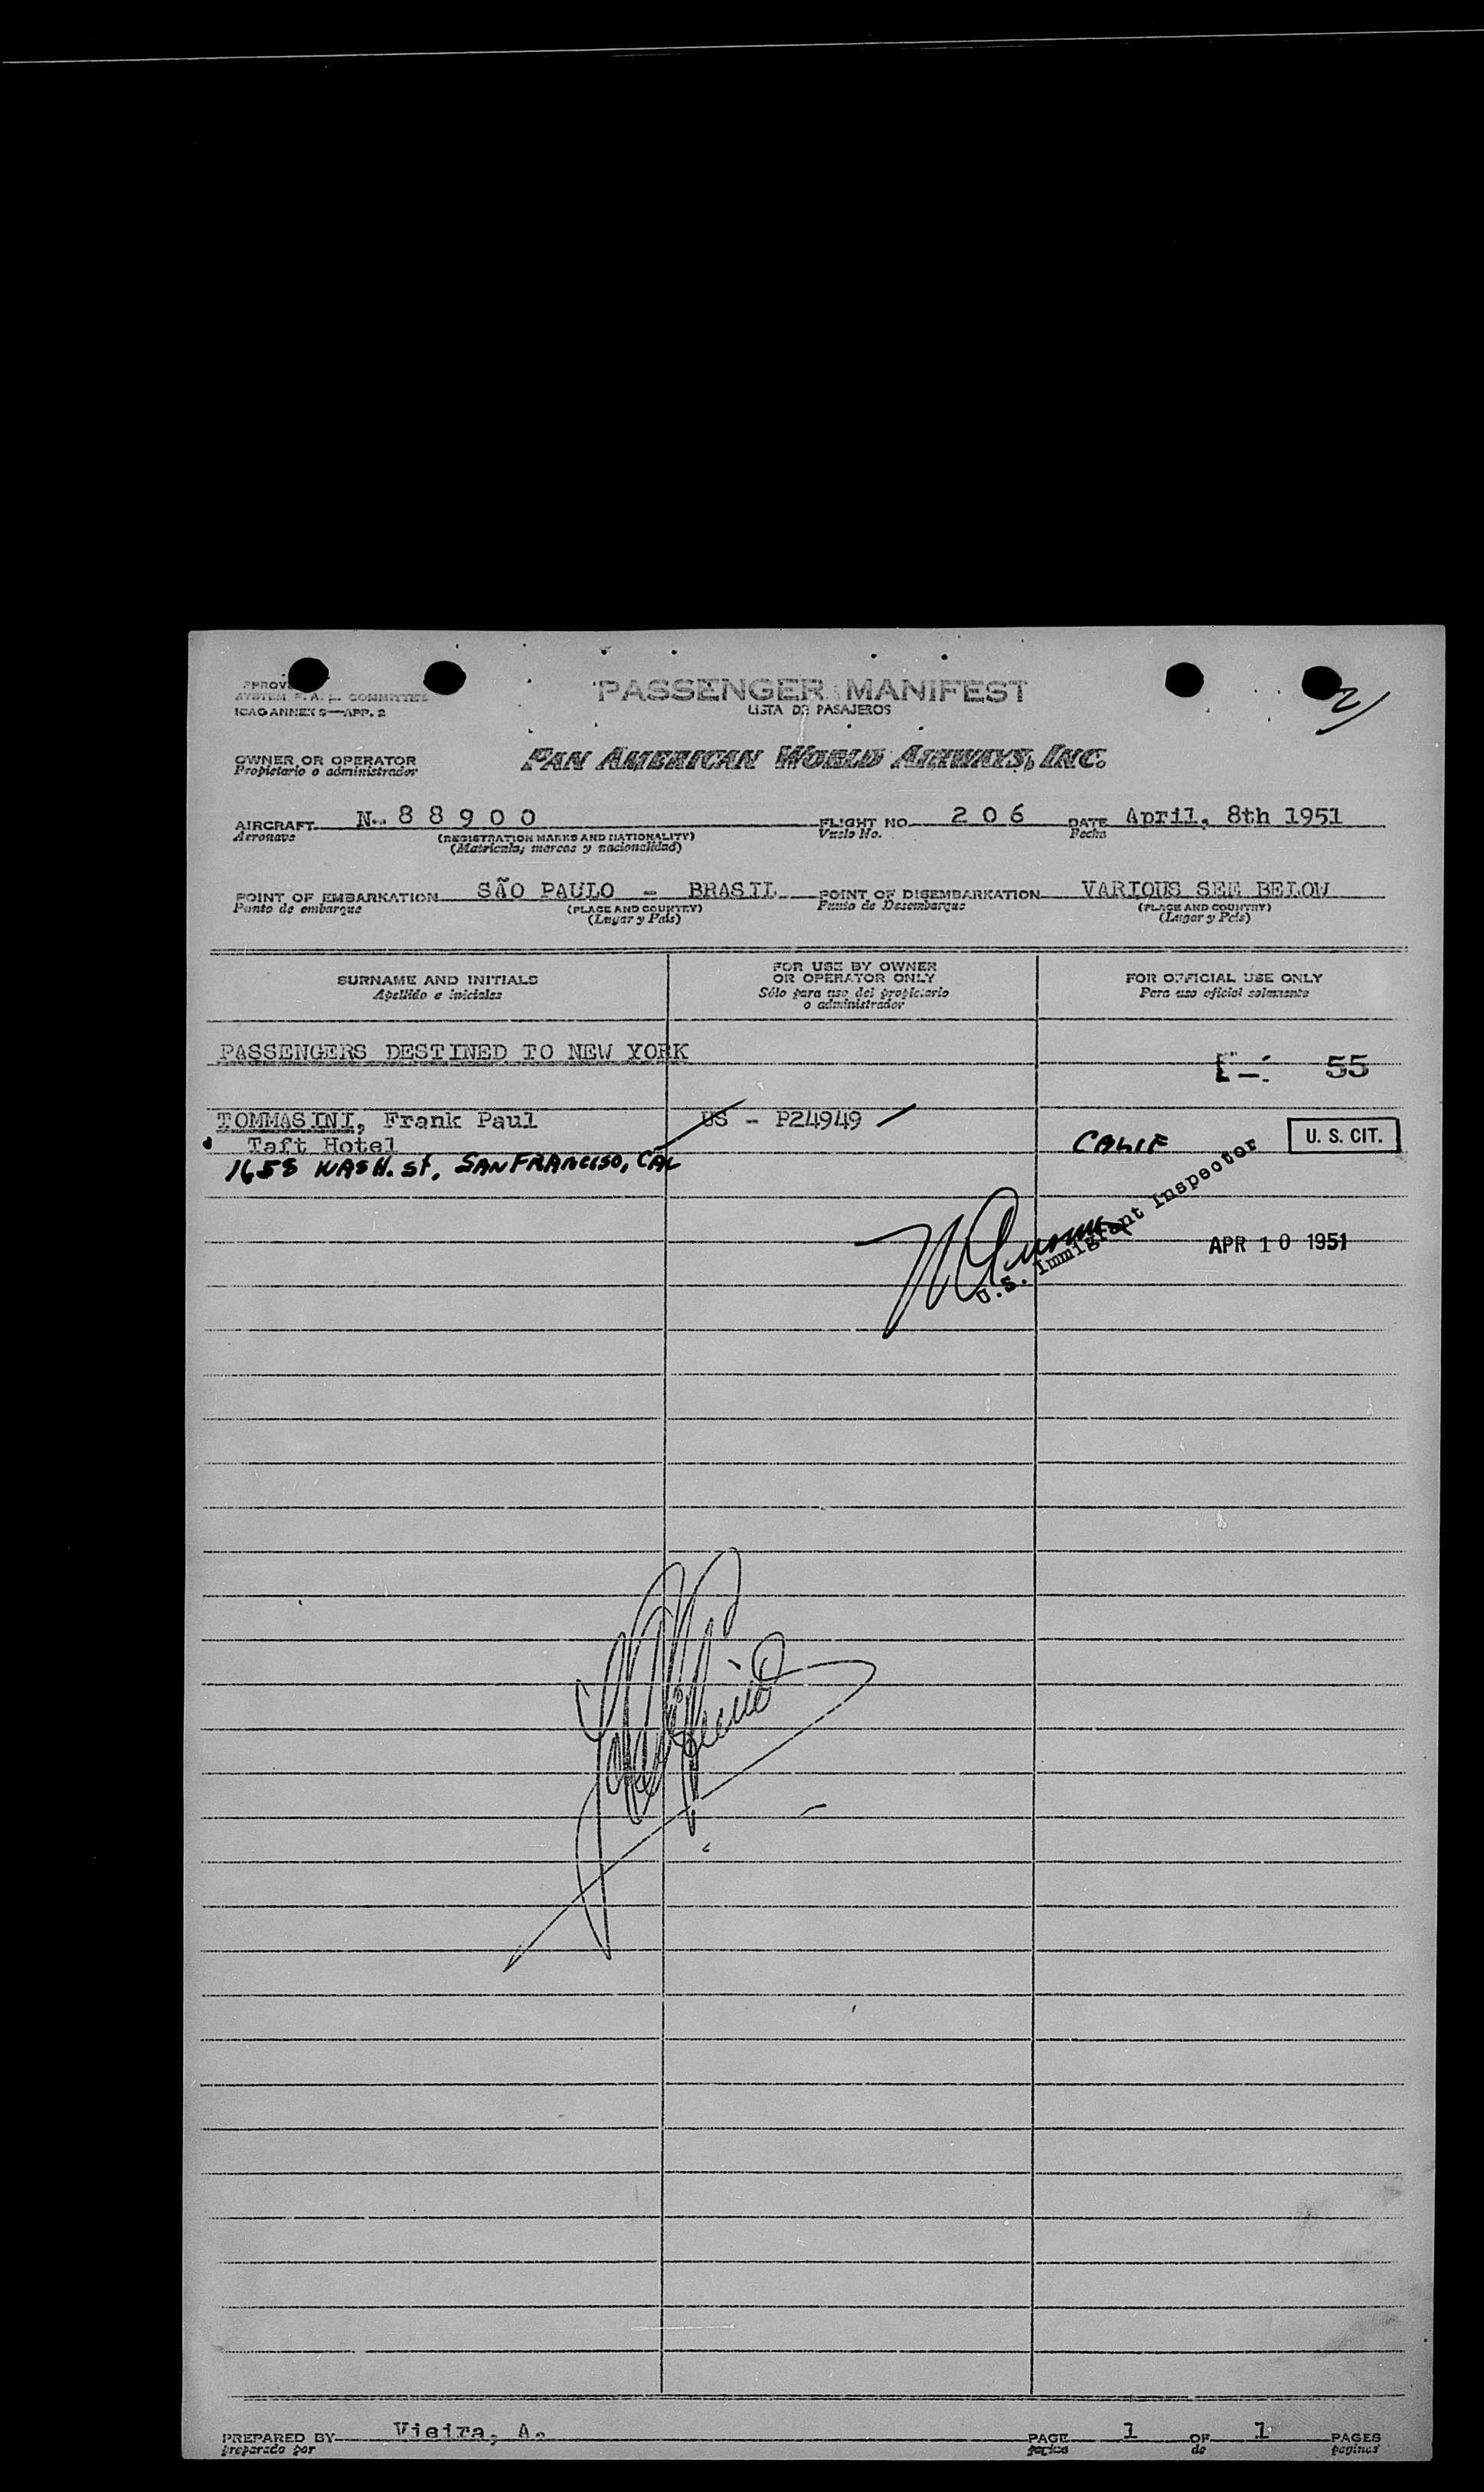 SYSTEM F. A. L. COMMITTEE
ICAO ANNEX 9—APP. 2
PASSENGER MANIFEST
LISTA DE PASAJEROS
2
OWNER OR OPERATOR
Propietario o administrador
PAN AMERICAN WORLD AIRWAYS, INC.
AIRCRAFT N. 8 8 9 0 0 FLIGHT NO. 2 0 6 DATE April, 8th 1951
Aeronave (REGISTRATION MARKS AND NATIONALITY) Vuelo No. Fecha
(Matricula; marcas y nacionalidad)
POINT OF EMBARKATION SÃO PAULO - BRASIL POINT OF DISEMBARKATION VARIOUS SEE BELOW
Punto de embarque (PLACE AND COUNTRY) Punto de Desembarque (PLACE AND COUNTRY)
(Lugar y País) (Lugar y País)
SURNAME AND INITIALS FOR USE BY OWNER OR OPERATOR ONLY FOR OFFICIAL USE ONLY
Apellido e iniciales Sólo para uso del propietario o administrador Para uso oficial solamente
PASSENGERS DESTINED TO NEW YORK
55
TOMMASINI, Frank Paul US - P24949
Taft Hotel CALIF U. S. CIT.
1658 WASH. St, SAN FRANCISO, CAL
U.S. Immigrant Inspector
APR 10 1951
PREPARED BY Vieira, A. PAGE 1 OF 1 PAGES
preparado por pagina de paginas